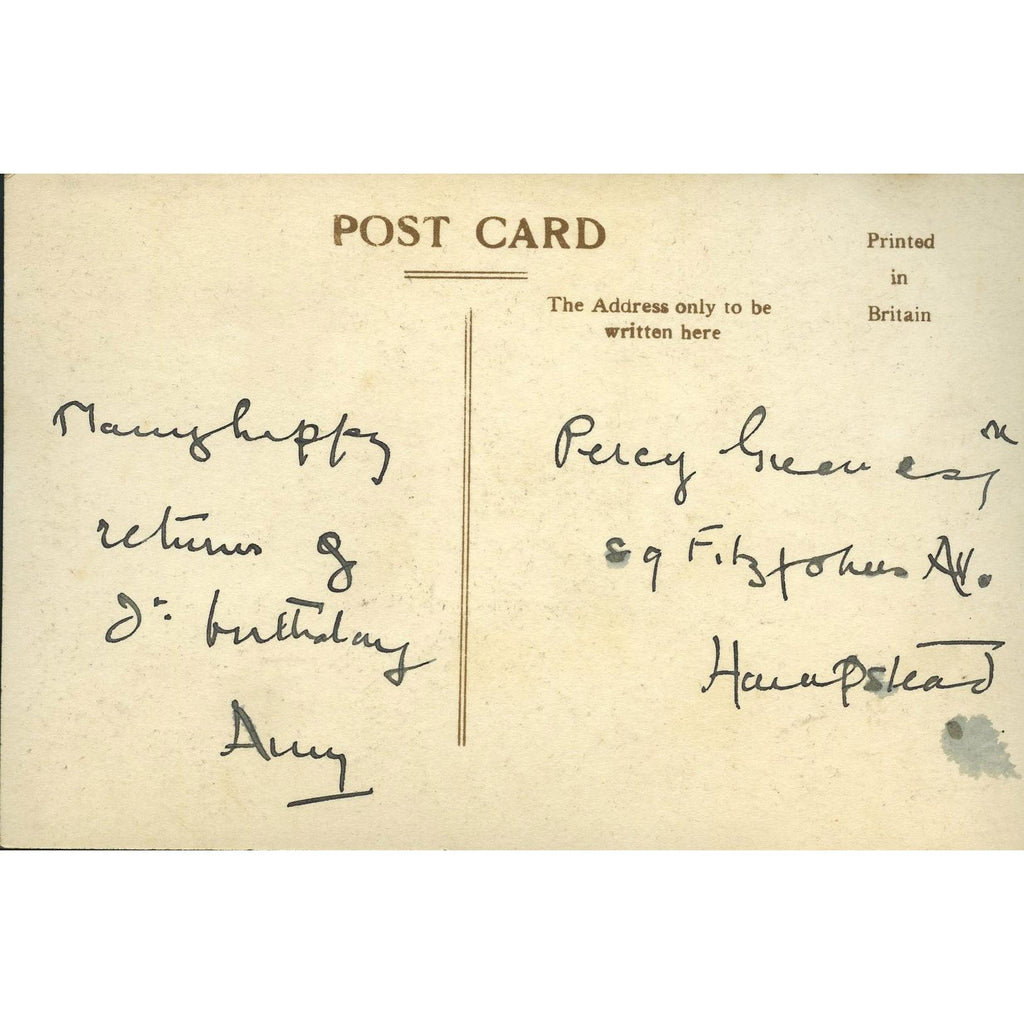 POST CARD
Printed
in
Britain
The Address only to be
written here
Many happy
returns of
yr. birthday
Amy
Percy Green esq
59 Fitzjohns Av.
Hampstead